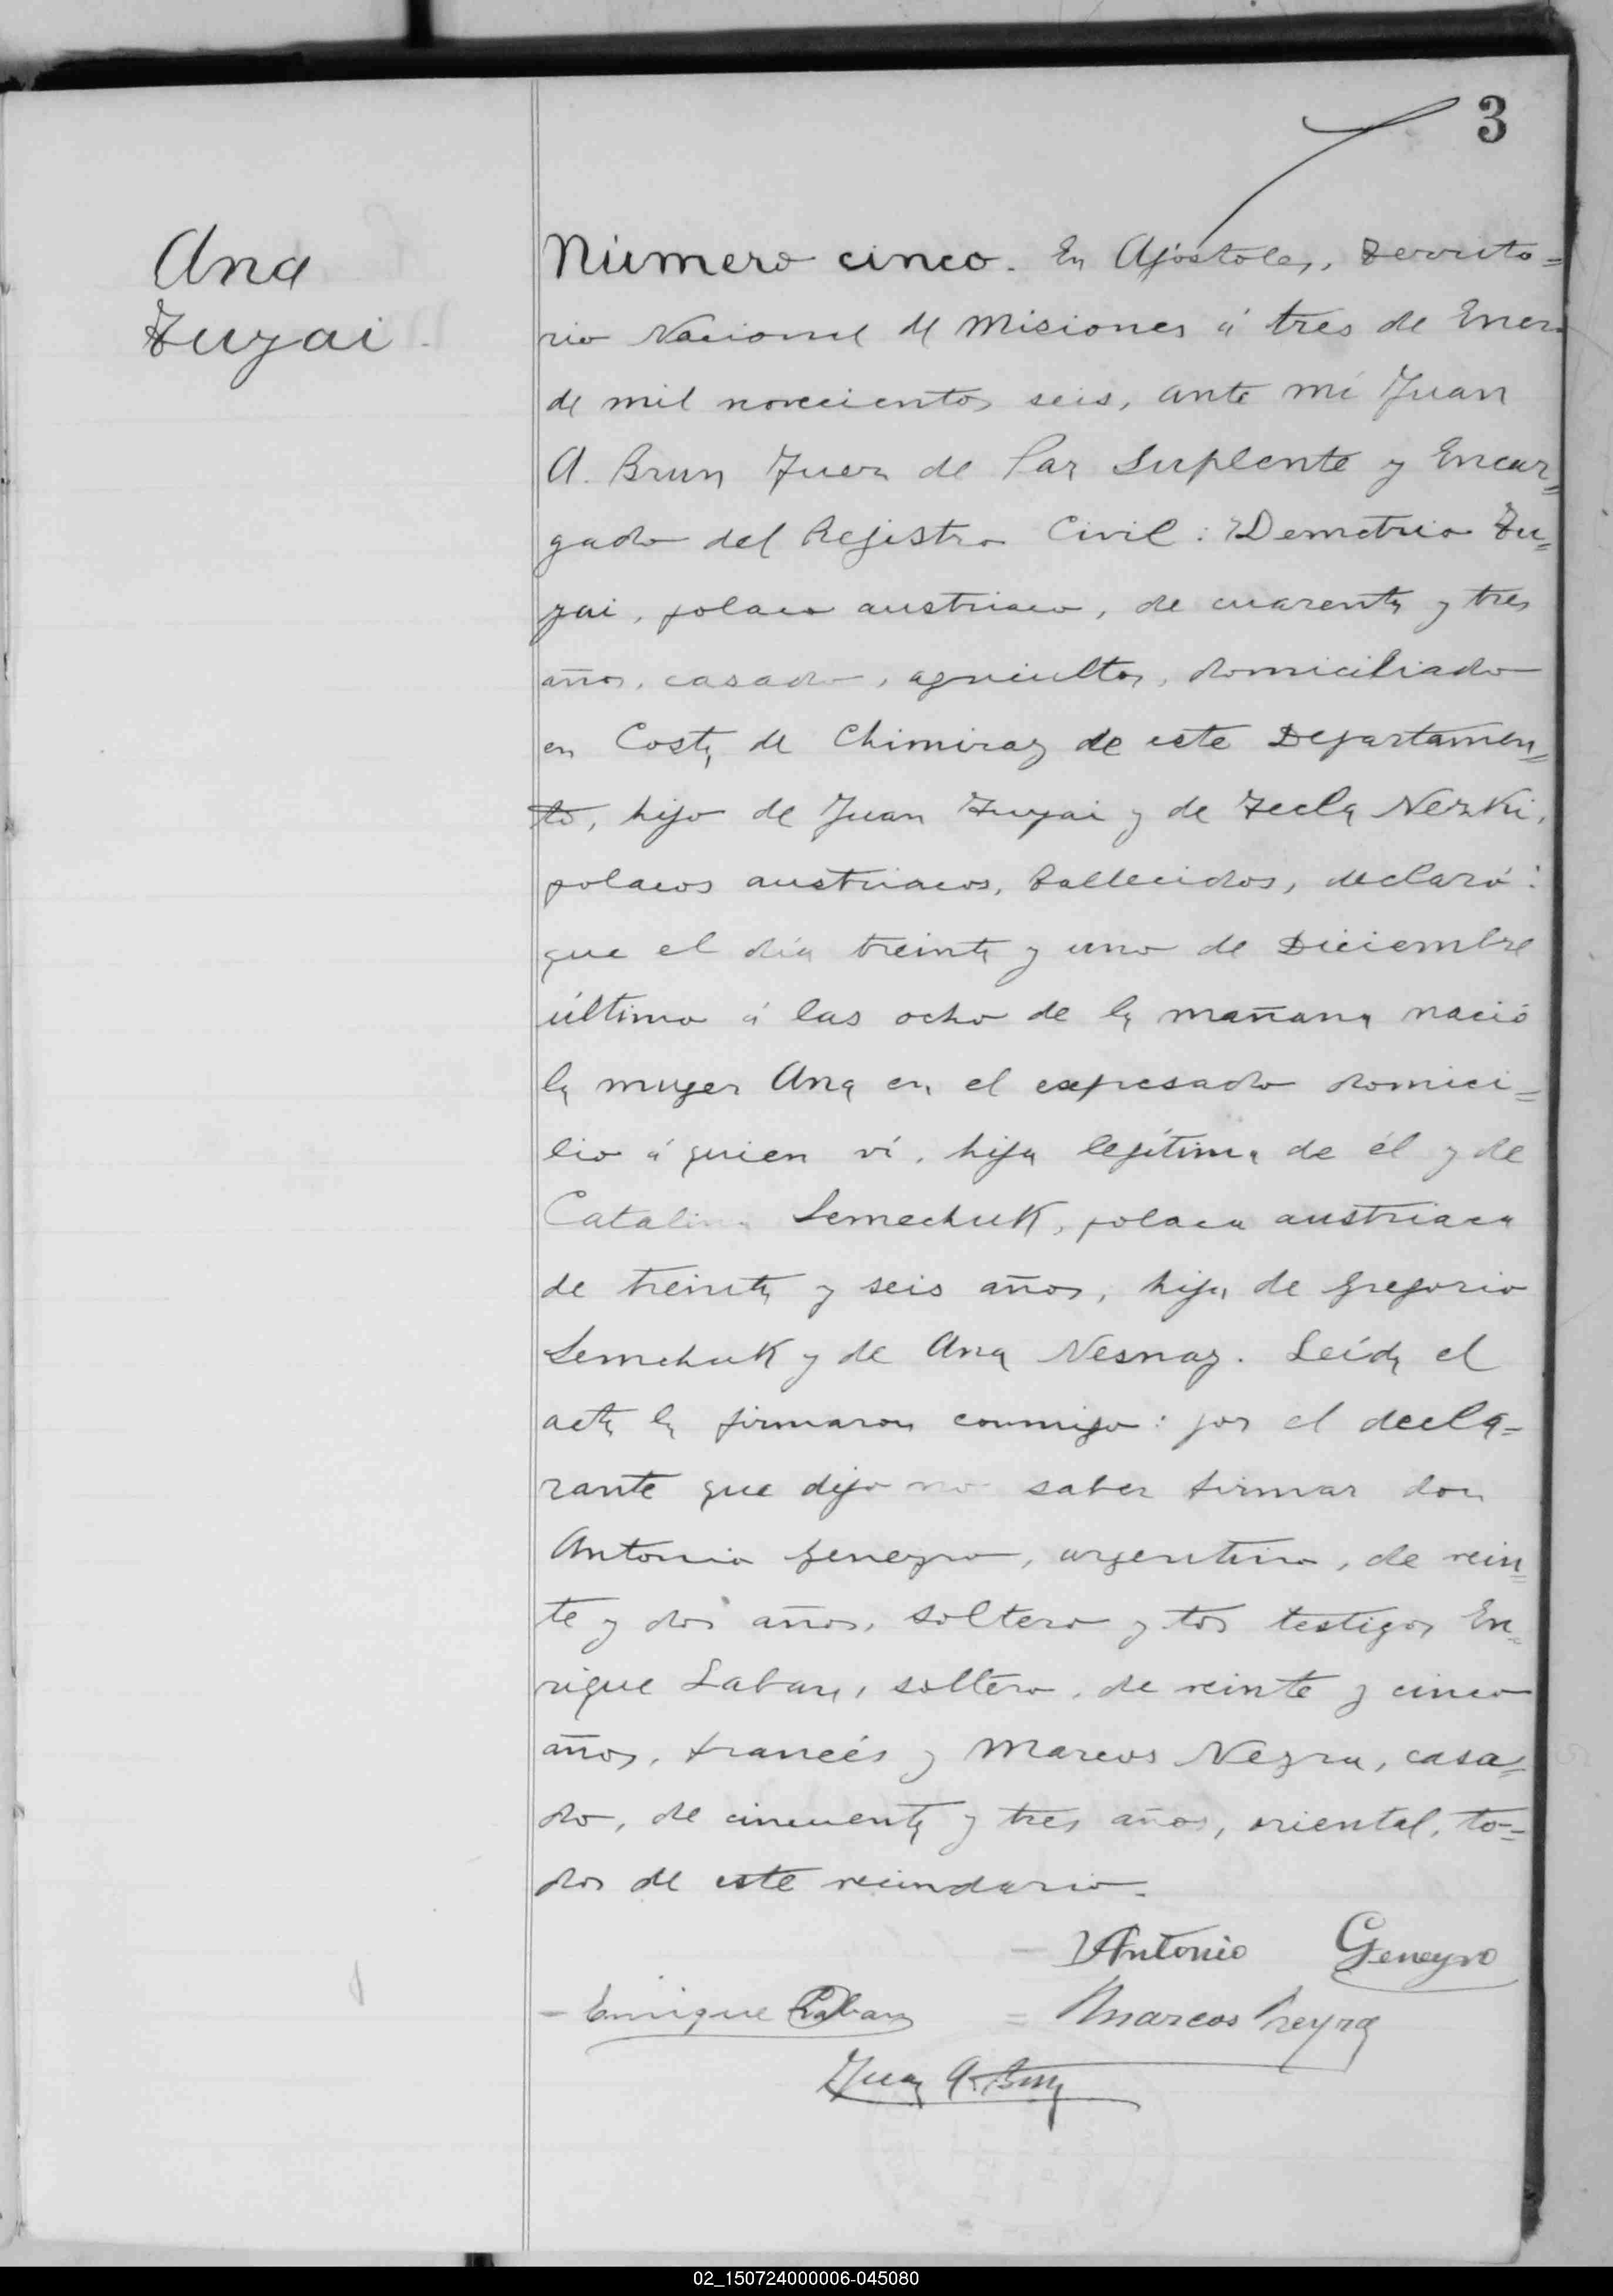 3
Ana
Tuzai.
Número cinco. En Apóstoles, Territo=
rio Nacional de Misiones á tres de Enero
de mil novecientos seis, ante mí Juan
A. Brun Juez de Paz Suplente y Encar=
gado del Rejistro Civil: Demetrio Tu=
zai, polaco austriaco, de cuarenta y tres
años, casado, agricultor, domiciliado
en Costa de Chimiray de este Departamen=
to, hijo de Juan Tuzai y de Tecla Nezki,
polacos austriacos, fallecidos, declaró:
que el día treinta y uno de Diciembre
último á las ocho de la mañana nació
la muger Ana en el expresado domici=
lio á quien ví, hija lejítima de él y de
Catalina Semechuk, polaca austriaca
de treinta y seis años, hija de Gregorio
Semchuk y de Ana Nesnay. Leida el
acta la firmaron conmigo: por el decla=
rante que dijo no saber firmar don
Antonio Geneyro, argentino, de vein=
te y dos años, soltero y los testigos En=
rique Laban, soltero, de veinte y cinco
años, francés y Marcos Neyra, casa=
do, de cincuenta y tres años, oriental, to=
dos de este vecindario.
Antonio Geneyro
Enrique Laban = Marcos Neyra
Juan A. Brun
02_150724000006-045080